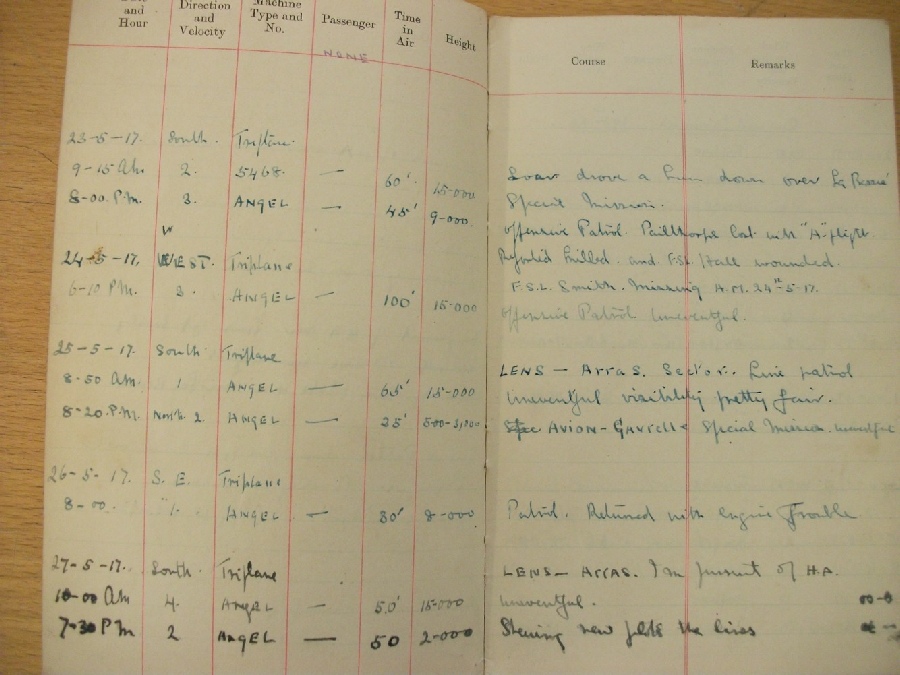 and Hour
Direction and Velocity
Machine Type and No.
Passenger
Time in Air
Height
Course
Remarks
NONE
23-5-17. South. Triplane.
9-15 Am. 2. 5468. — 60' 15-000 drove a Hun down over La
8-00. P.m. 3. ANGEL — 45' 9-000. Special Mission.
W offensive Patrol. Pailthorpe lost with "A" flight.
24-5-17. WEST. Triplane Reported killed. and F.S.L. Hall wounded.
6-10 P.m. 3. ANGEL — 100' 15-000 F.S.L. Smith. Missing A.M. 24th-5-17.
offensive Patrol uneventful.
25-5-17. South Triplane LENS - Arras. Sector. Line patrol
8-50 Am. 1 ANGEL — 65' 15-000 uneventful visibility pretty fair.
8-20. P.M. North. 2. ANGEL — 25' 500- AVION - Gavrelle Special Mission. uneventful
26-5-17. S. E. Triplane
8-00. 1. ANGEL — 30' 8-000 Patrol. Returned with engine Trouble
27-5-17. South. Triplane LENS - Arras. In pursuit of H.A.
10-00 Am 4. Angel — 50' 15-000 uneventful.
7-30 P m 2 AngEL — 50 2-000 new the lines